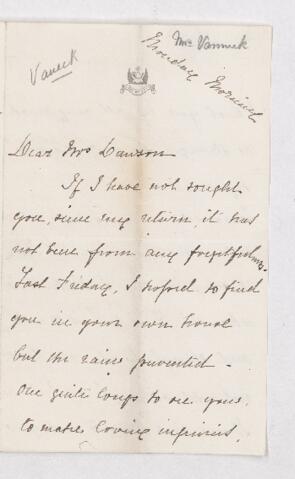 Mrs Vanneck
Vaneck
Monday Morning
Dear Mrs Lawson
If I have not sought
you, since my return, it has
not been from any forgetfulness.
Last Friday, I hoped to find
you in your own house
but the rains prevented -
One quite longs to see you,
to make loving inquiries,